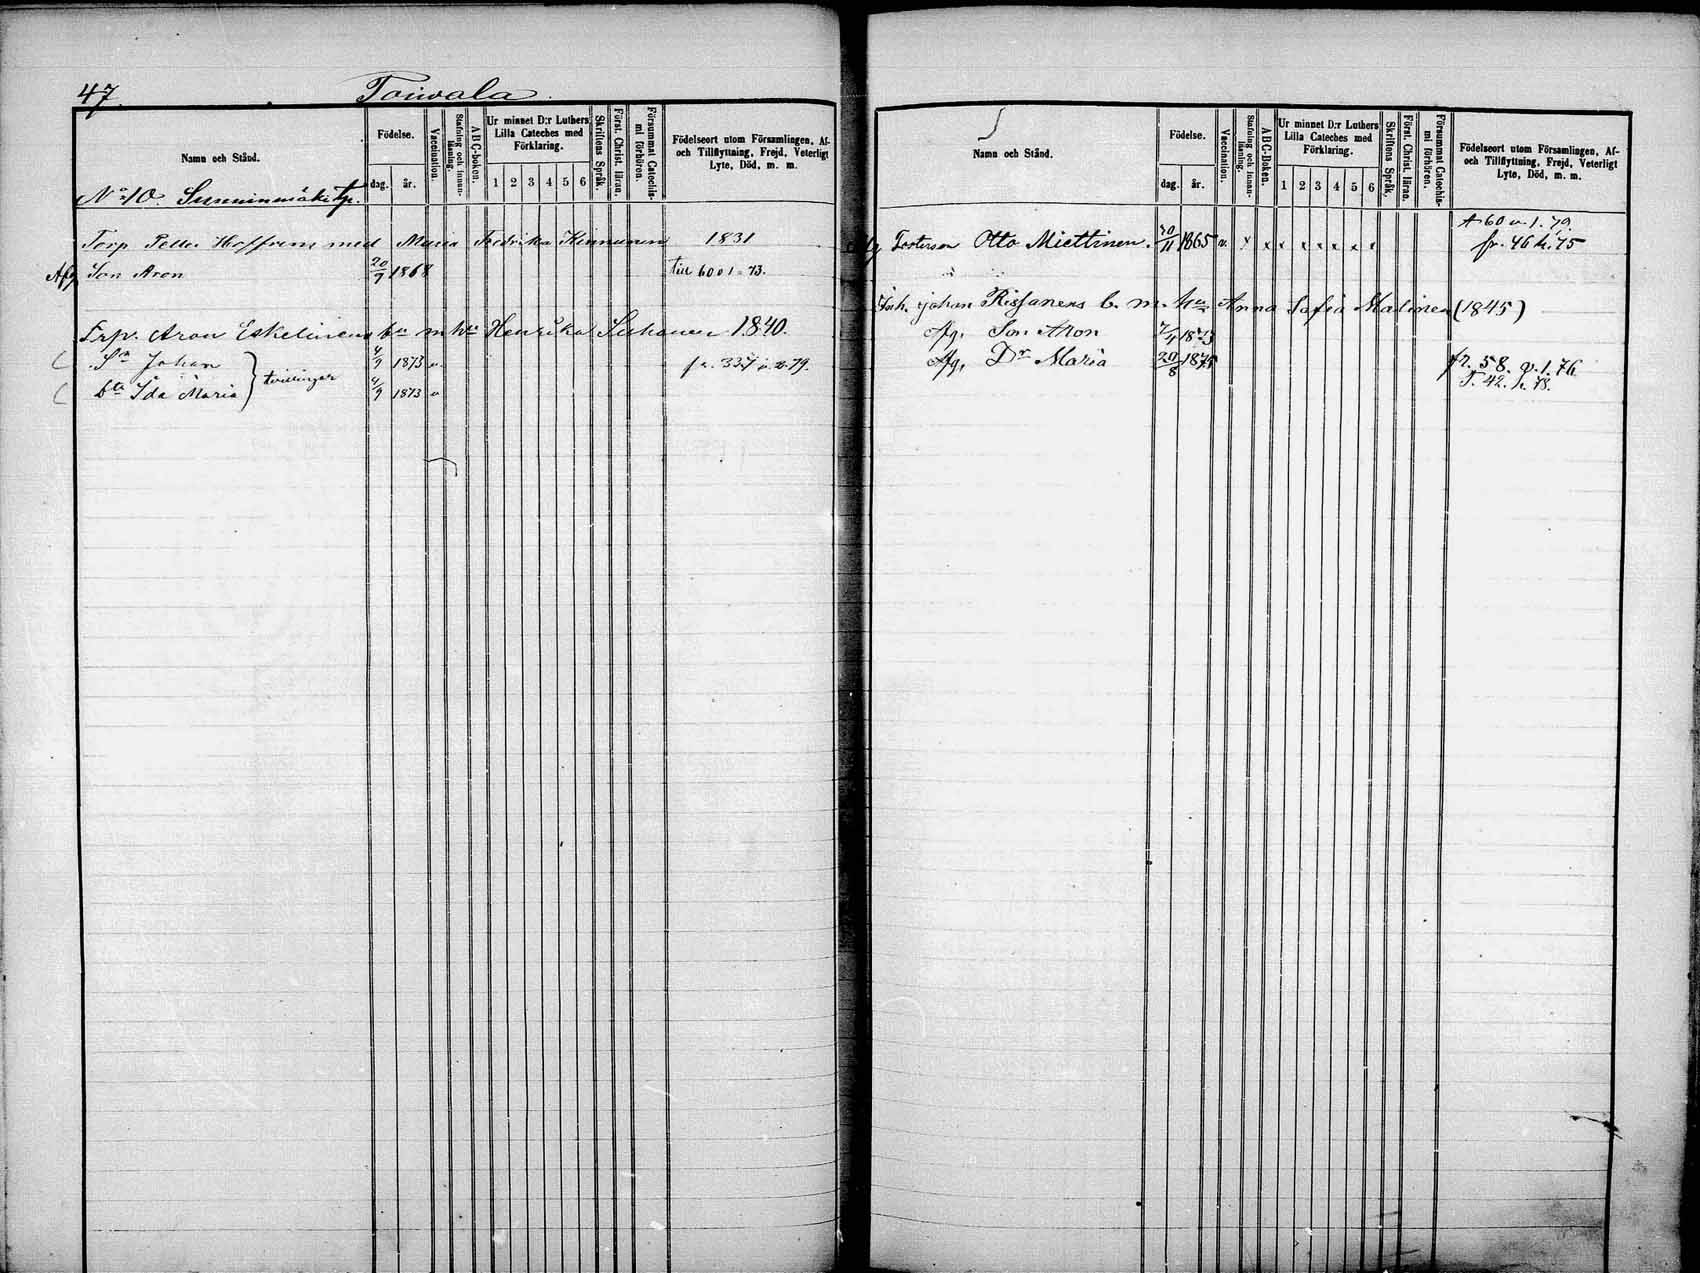 47. Toiwala.
Namn och Stånd.
Födelse.
dag. år.
Vaccination.
Stafning och innanläsning.
ABC-boken.
Ur minnet D:r Luthers Lilla Cateches med Förklaring.
1 2 3 4 5 6
Skriftens Språk.
Först. Christ. läran.
Försummat Catechismi förhören.
Födelseort utom Församlingen, Af- och Tillflyttning, Frejd, Veterligt Lyte, Död, m. m.
No 10. Sureninmäki tp.
Torp. Petter Hoffrens med Maria Fredrika Kinnunen 1831
Afg Son Aron 20/9 1868 till 60 v 1. 73.
Trp. Aron Eskelinens bn m hu Henrika Suhonen 1840.
Sn Johan } tvillingar 4/9 1873 v. fr. 337 v. 2. 79.
dtr Ida Maria 4/9 1873 v
Namn och Stånd.
Födelse.
dag. år.
Vaccination.
Stafning och innanläsning.
ABC-Boken.
Ur minnet D:r Luthers Lilla Cateches med Förklaring.
1 2 3 4 5 6
Skriftens Språk.
Först. Christ. läran.
Försummat Catechismi förhören.
Födelseort utom Församlingen, Af- och Tillflyttning, Frejd, Veterligt Lyte, Död, m. m.
A 60 v. 1. 79.
Afg Fosterson Otto Miettinen. 30/11 1865 v. x x x x x x x x fr. 46 h. 75
Inh. Johan Rissanens b. m. hu Anna Sofia Malinen (1845)
Afg. Son Aron 7/4 1873
Afg. Dr Maria 20/8 1875 fr. 58. v. 1. 76.
T. 42. h. 78.